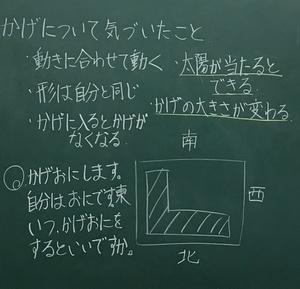 かげについて気づいたこと
・動きに合わせて動く
・形は自分と同じ
・かげに入るとかげが
なくなる
・太陽が当たると
できる
・かげの大きさが変わる
かげおにします。
自分はおにです。
いつ、かげおにを
するといいですか。
南
東
西
北